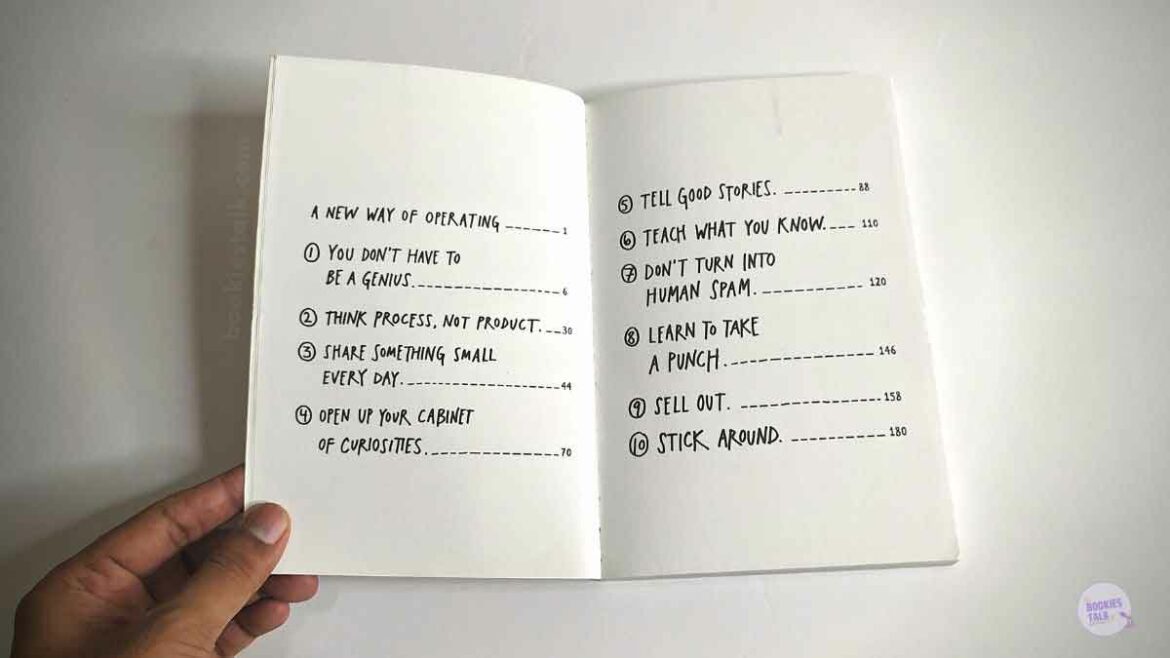 A NEW WAY OF OPERATING ______ 1
① YOU DON'T HAVE TO
BE A GENIUS. ______________ 6
② THINK PROCESS, NOT PRODUCT. __ 30
③ SHARE SOMETHING SMALL
EVERY DAY. ______________ 44
④ OPEN UP YOUR CABINET
OF CURIOSITIES. ____________ 70
⑤ TELL GOOD STORIES. _________ 88
⑥ TEACH WHAT YOU KNOW. ___ 110
⑦ DON'T TURN INTO
HUMAN SPAM. ___________ 120
⑧ LEARN TO TAKE
A PUNCH. ______________ 146
⑨ SELL OUT. _____________ 158
⑩ STICK AROUND. _________ 180
bookiestalk.com
BOOKIES
TALK